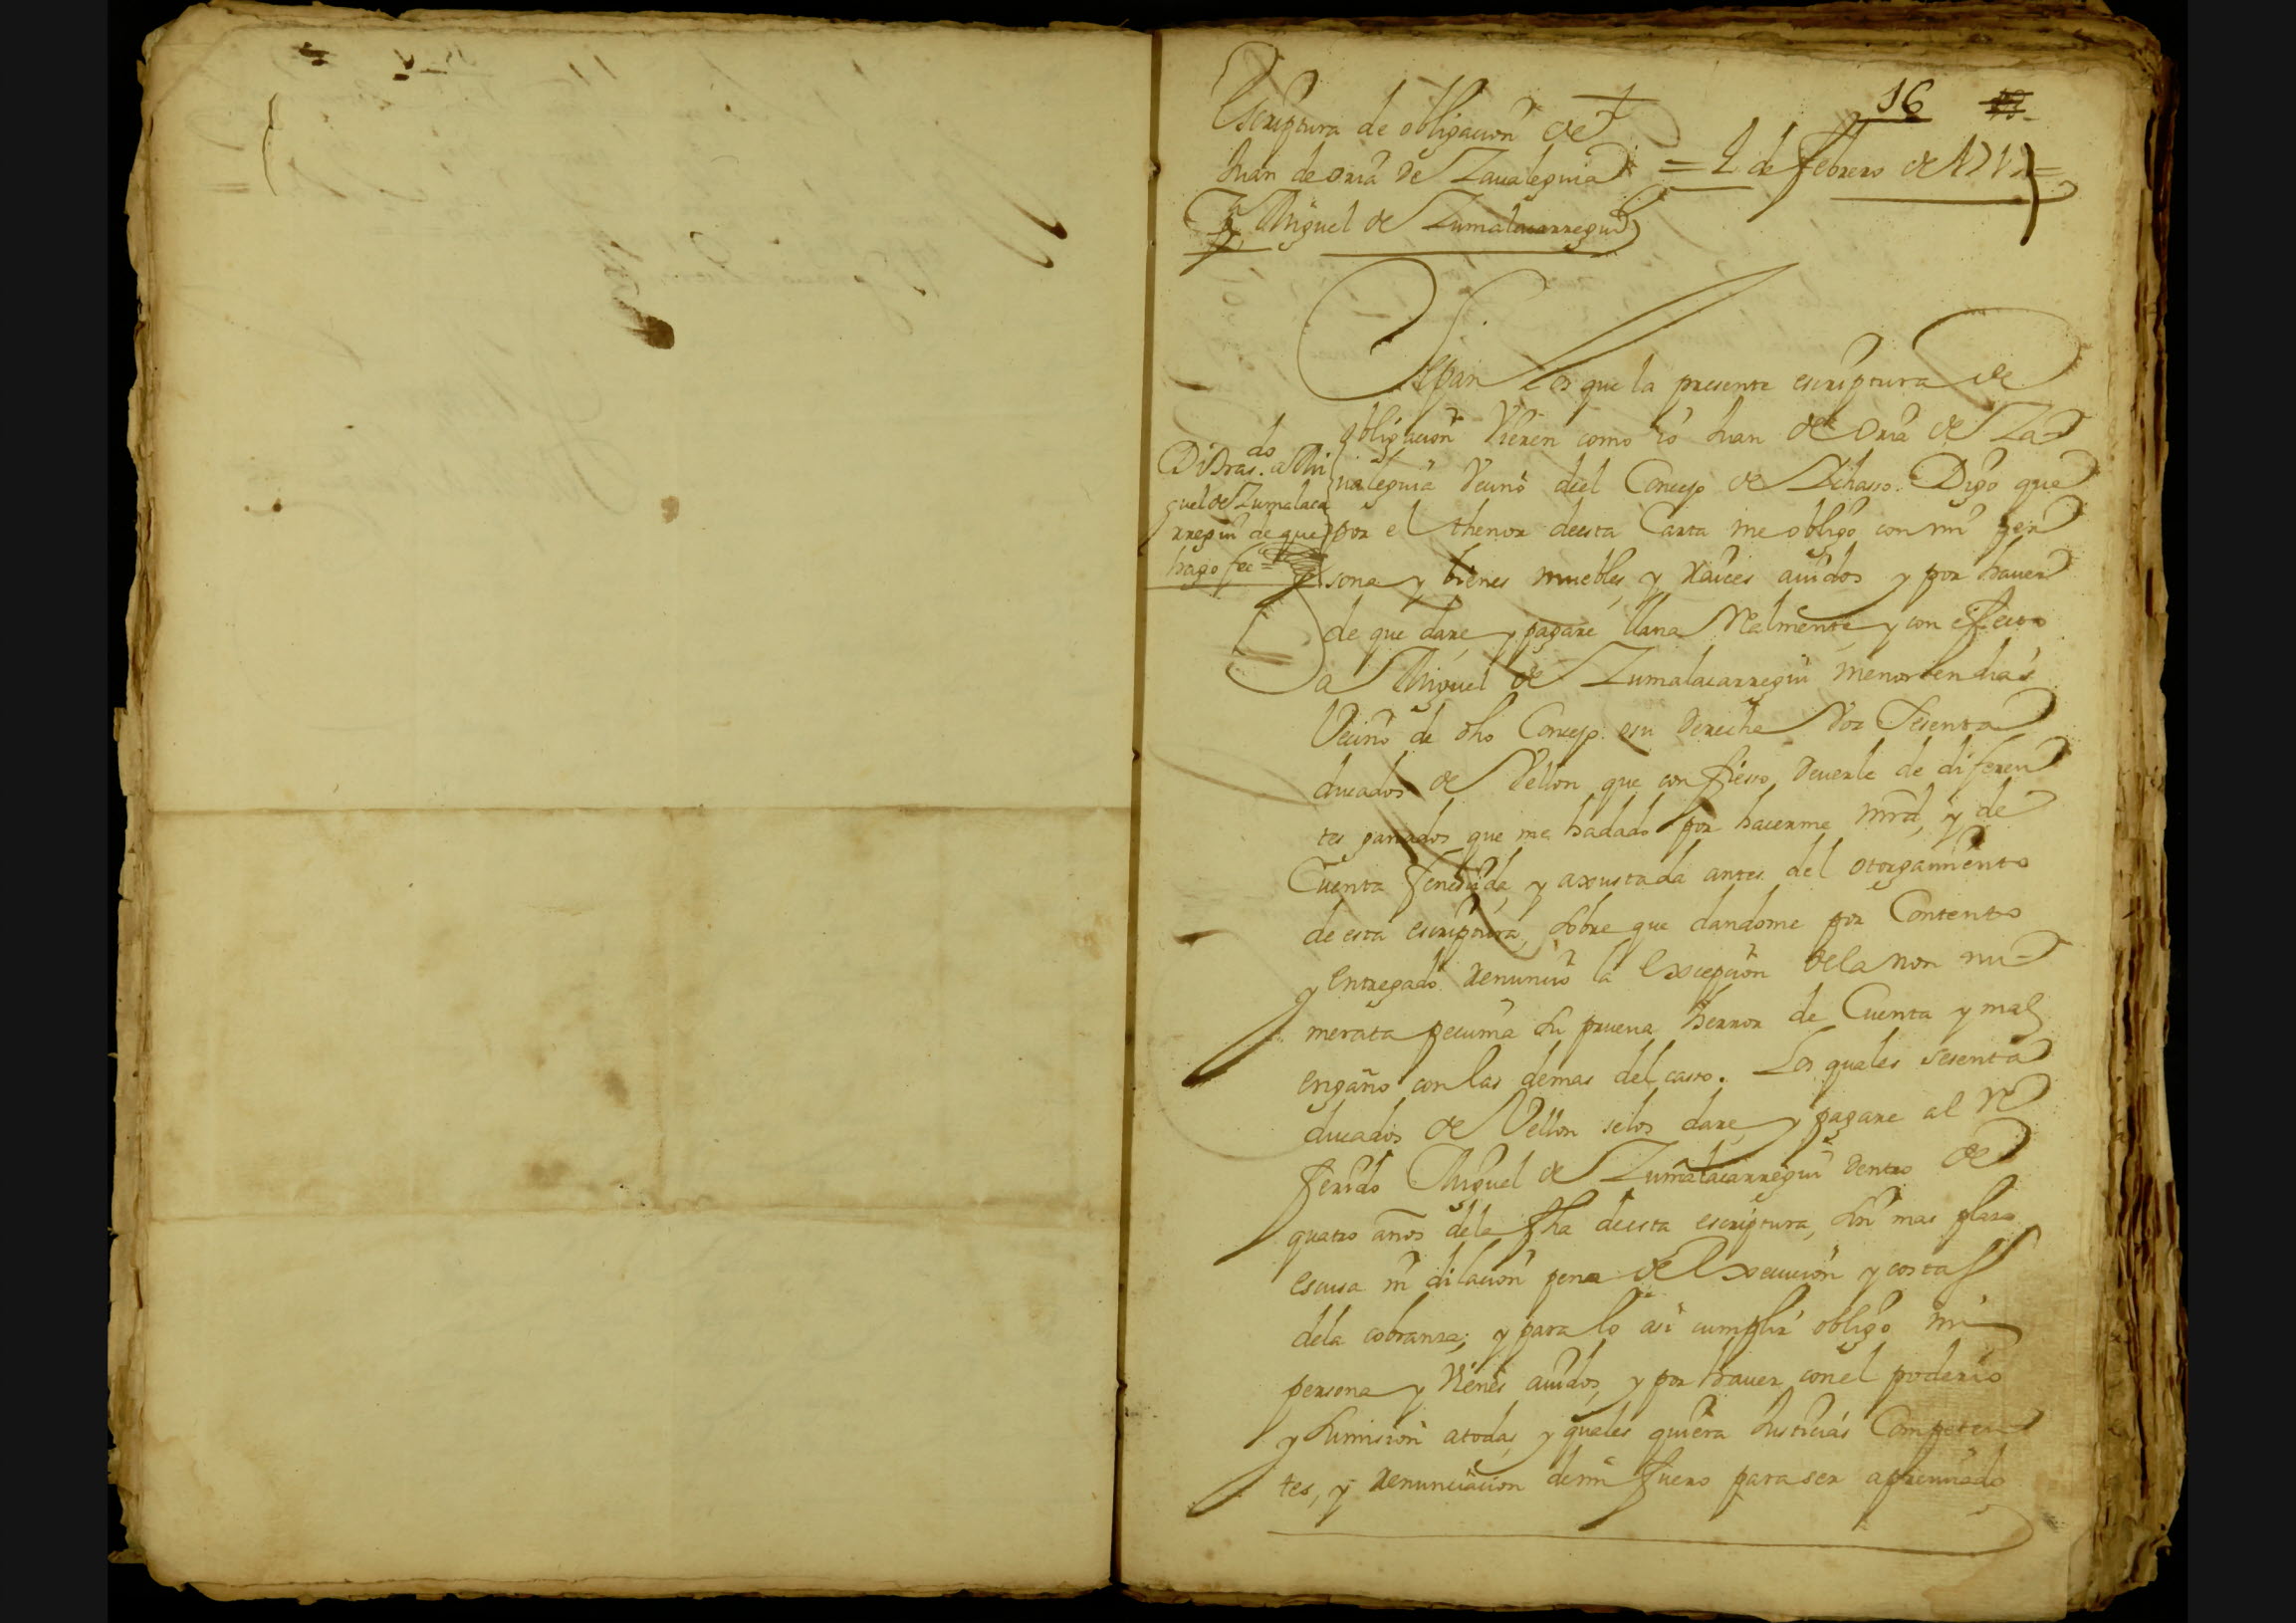 16
Escriptura de obligacion de
Juan de oria de Zavaleguia
= 2 de febrero de
a Miguel de Zumalacarregui
Sepan los que la presente escriptura de
obligacion vieren como io Juan de oria de Za
valeguia vecino deel Concejo de Digo que
por el thenor deesta Carta me obligo con mi per
sona y bienes muebles, y raices avidos y por haver
de que dare y pagare llana realmente y con efecto
a Miguel de Zumalacarregui menor en dias
Vecino de dho Concejo. o su derecho voz Sesenta
ducados de Vellon que confiesso deverle de diferen
tes ganados que me ha dado por hacerme mrd, y de
Cuenta fenecida, y axustada antes del otorgamiento
de esta escriptura, sobre que dandome por Contento
y entregado renuncio la excepcion dela non nu
merata pecunia su prueva herror de Cuenta y mal
engaño con las demas del casso. Los quales sesenta
ducados de Vellon selos dare y pagare al re
ferido Miguel de Zumalacarregui dentro de
quatro años dela fha deesta escriptura, sin mas plazo
escusa ni dilacion pena de execucion y costas
dela cobranza; y para lo asi cumplir obligo mi
persona y vienes avidos, y por haver con el poderio
y sumision atodas, y quales quiera Justicias Competen
tes, y renunciacion demi fuero para ser apremiado
do
Di tras. a Mi
guel de Zumalaca
rregui de que
hago fee =